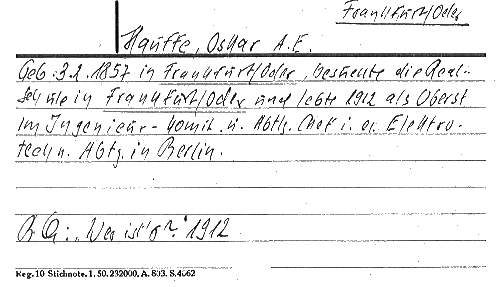 Frankfurt/Oder
Hauffe, Oskar A.E.
Geb. 3.2.1857 in Frankfurt/Oder, besuchte die Real-
schule in Frankfurt/Oder und lebte 1912 als Oberst
im Ingenieur-Komit. u. Abtg. Chef i. d. Elektro-
techn. Abtg. in Berlin.
B Q: „Wer ist's?" 1912
Reg. 10 Stichnote. 1. 50. 232000. A. 803. S. 4662